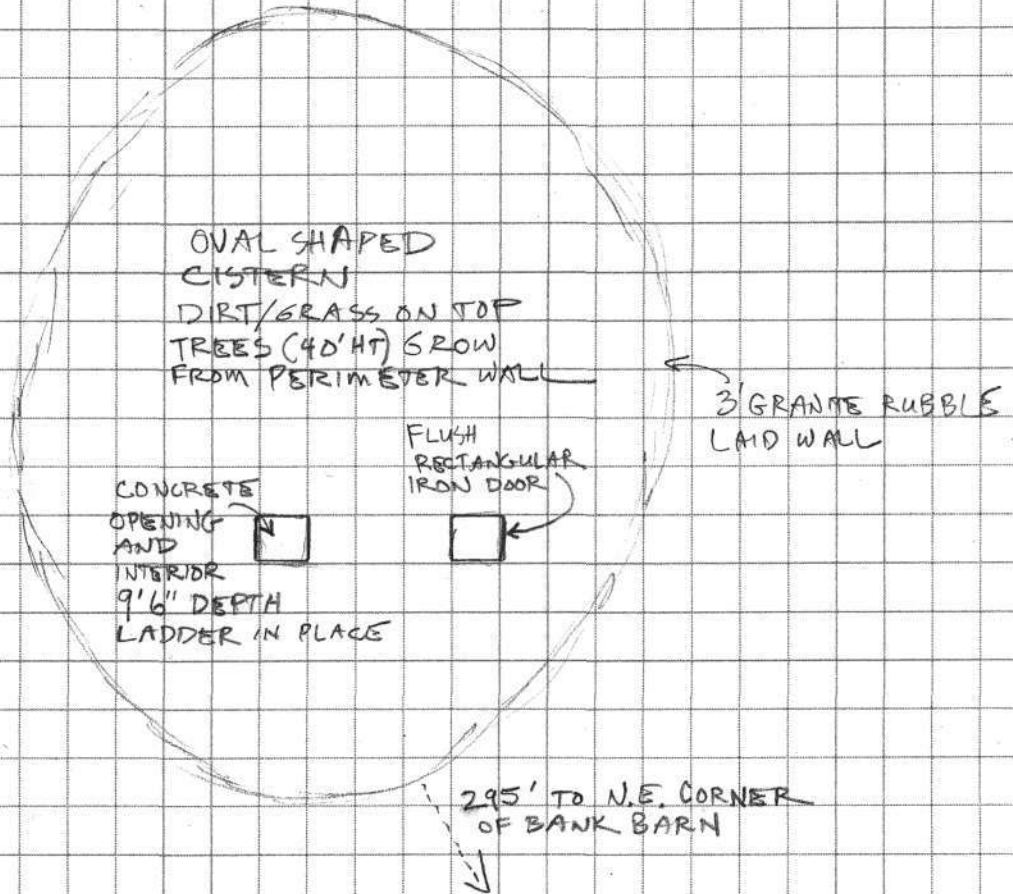 OVAL SHAPED
CISTERN
DIRT/GRASS ON TOP
TREES (40'HT) GROW
FROM PERIMETER WALL
3' GRANITE RUBBLE
LAID WALL
FLUSH
RECTANGULAR
IRON DOOR
CONCRETE
OPENING
AND
INTERIOR
9'6" DEPTH
LADDER IN PLACE
295' TO N.E. CORNER
OF BANK BARN